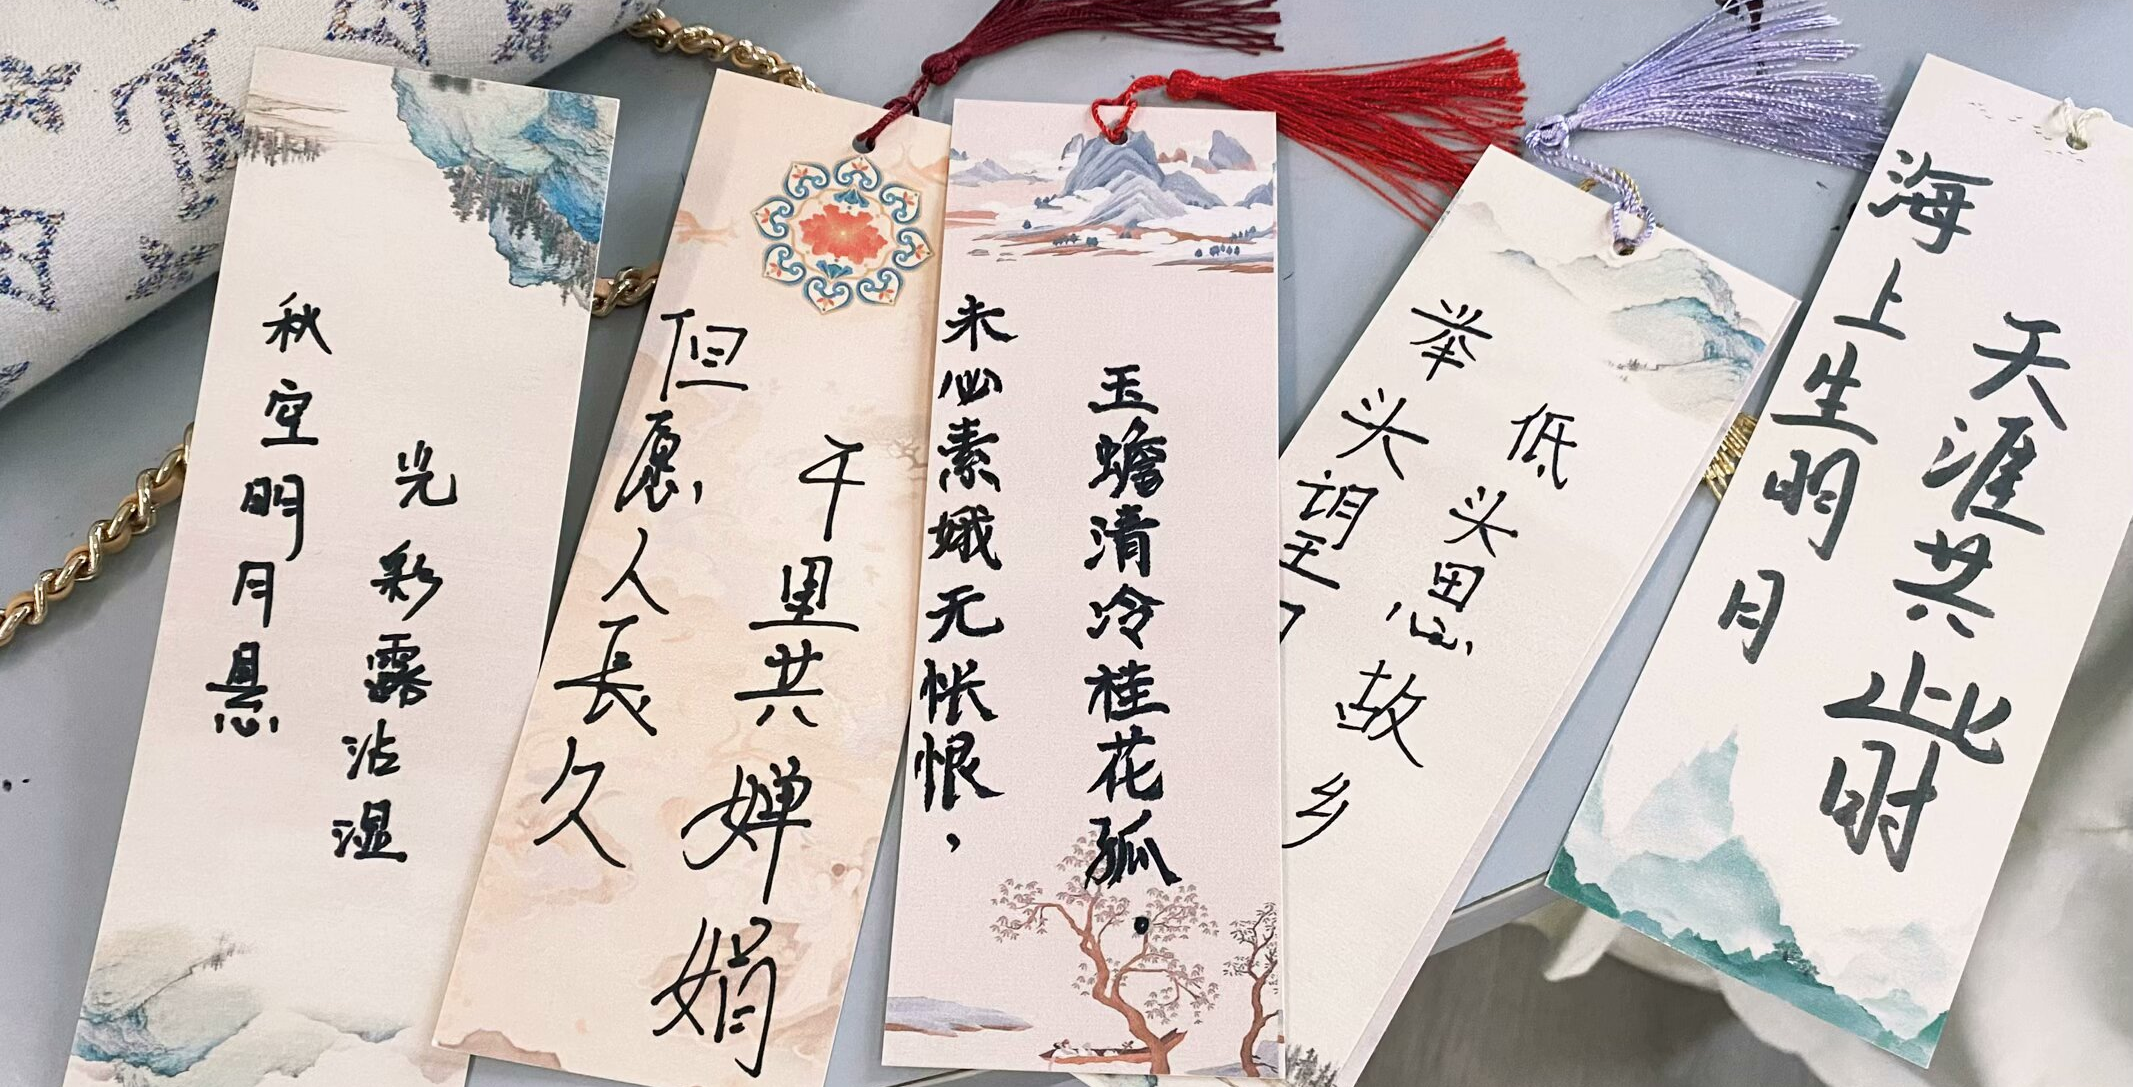 秋空明月悬
光彩露沾湿
但愿人長久
千里共婵娟
未必素娥无怅恨，
玉蟾清冷桂花孤.
举头望
低头思故乡
海上生明月
天涯共此时